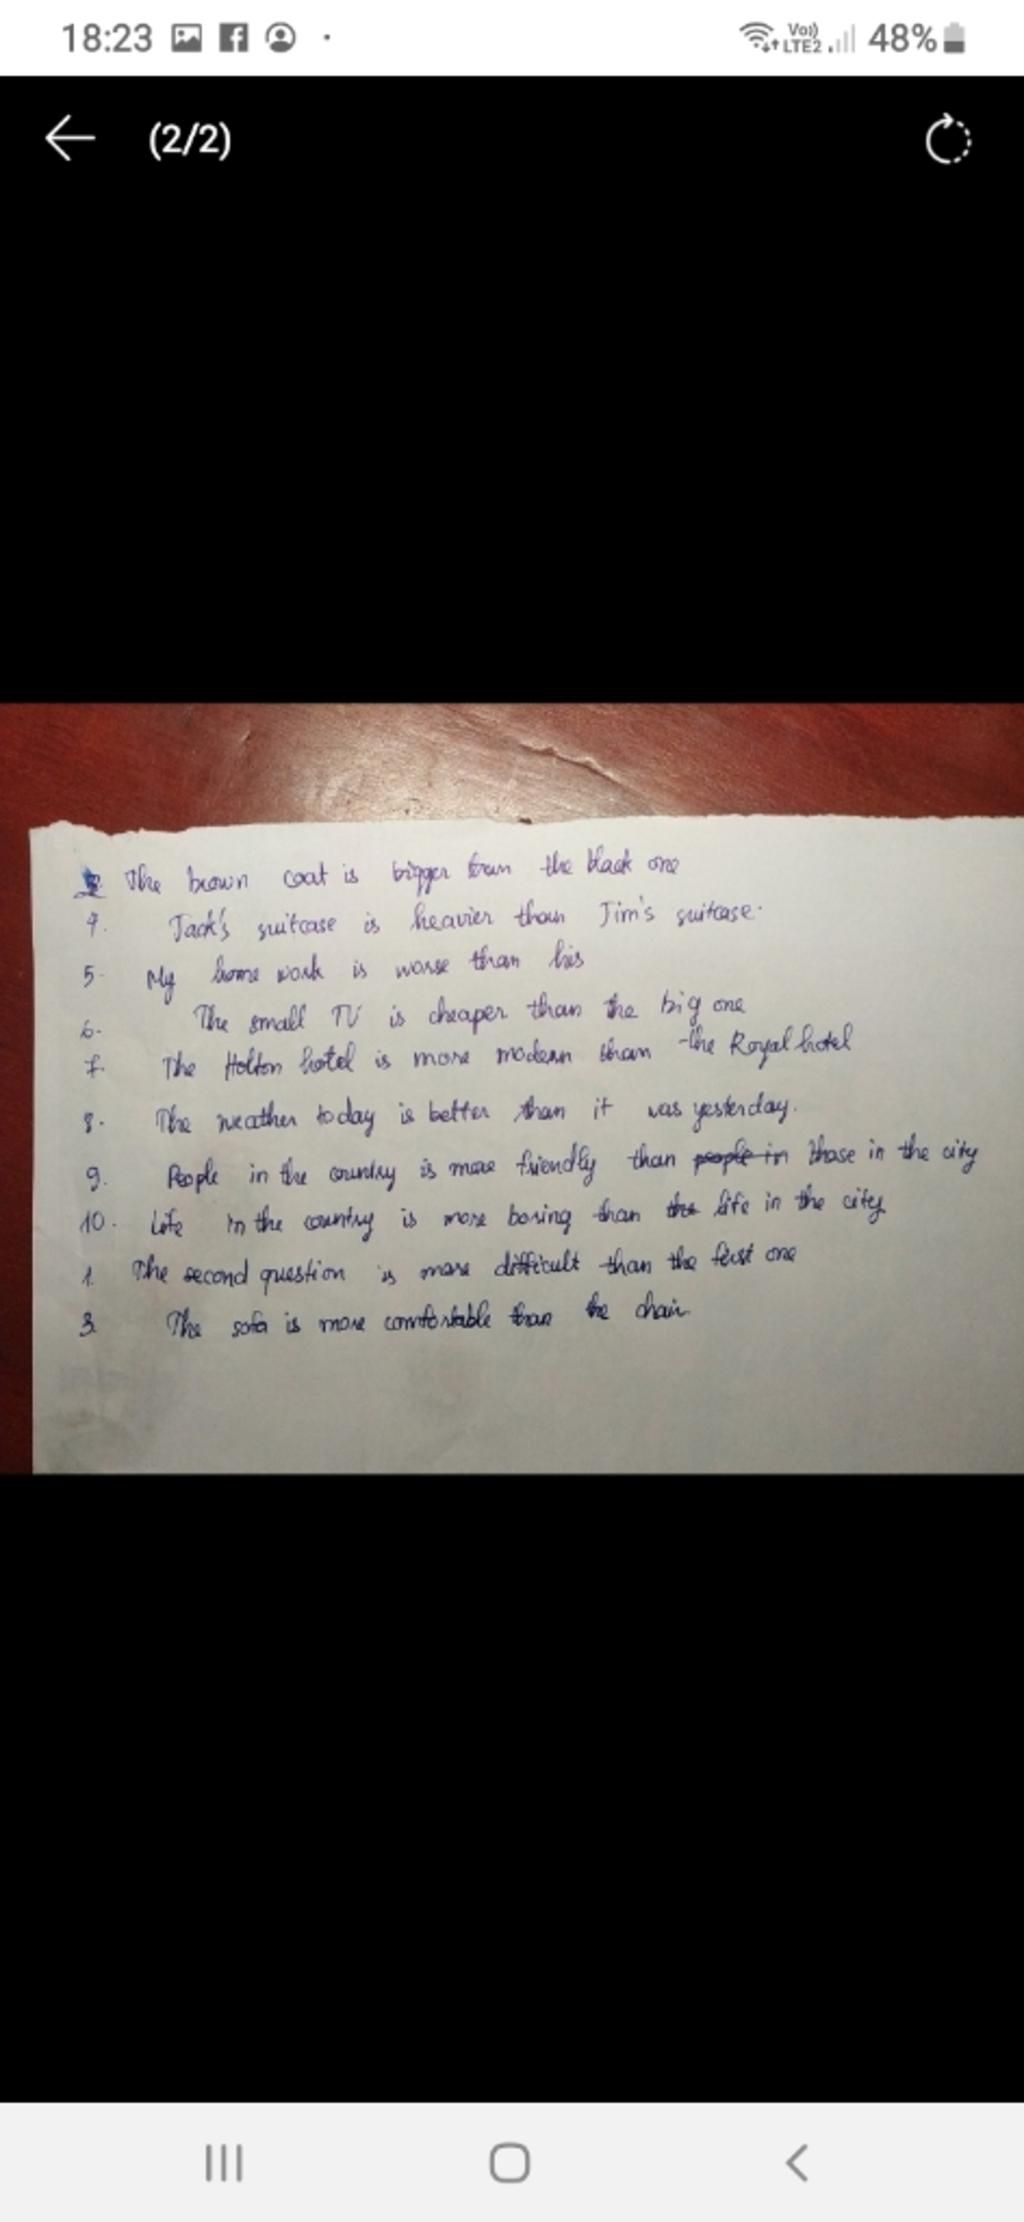 18:23
Vo)) LTE2 48%
(2/2)
2 The brown coat is bigger than the black one
4. Jack's suitcase is heavier than Jim's suitcase.
5. My home work is worse than his
6. The small TV is cheaper than the big one
7. The Holton hotel is more modern than the Royal hotel
8. The weather today is better than it was yesterday.
9. People in the country is more friendly than people in those in the city
10. Life in the country is more boring than the life in the city
1. The second question is more difficult than the first one
3. The sofa is more comfortable than the chair